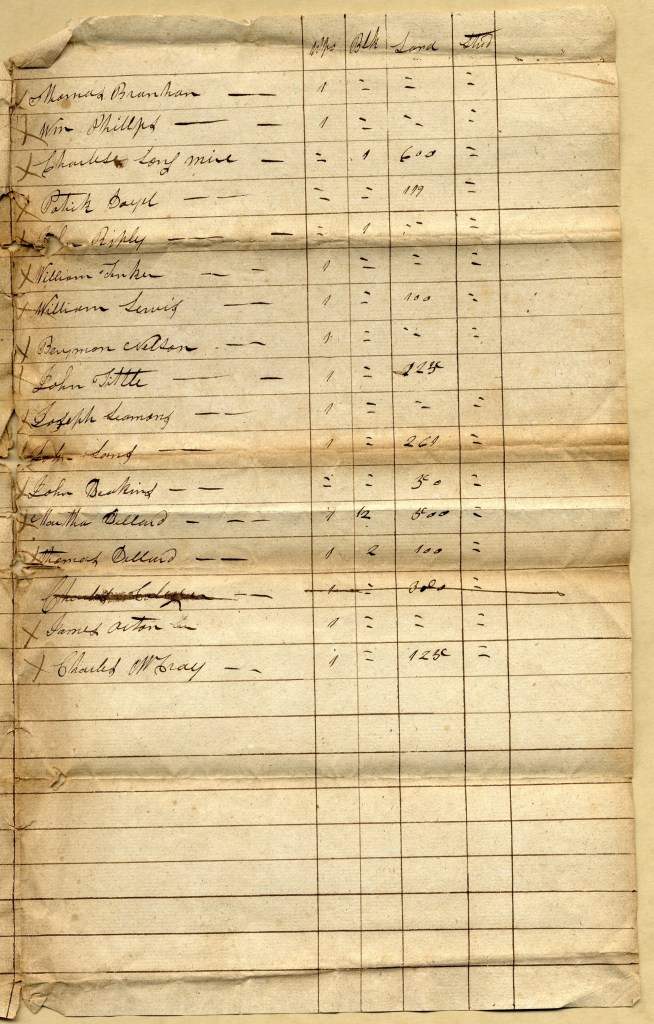 Wps Blk Land Stud
X Thomas Branhan — — 1 = = =
X Wm Phillips — — 1 = = =
X Charles Longmire — = 1 600 =
X Patick Doyl — — = = 119 =
X Riply — — = 1 = =
X William Tinker — — 1 = = =
X William Lewis — — 1 = 100 =
X Benjmon Nelson — — 1 = = =
X John Tittle — — 1 = 125
X Joseph Leamons — — 1 = = =
X John Long — — 1 = 261 =
X John Deakins — — = = 50 =
X Martha Dellard — — 1 12 500 =
X Thomas Dellard — — 1 2 100 =
Charles — — 1 = 300 =
X James Acton 1 = = =
X Charles McCray — — 1 = 125 =